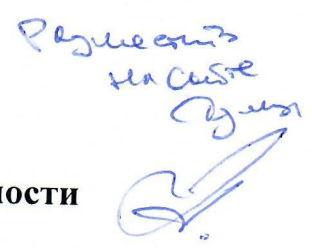 Разместить
на сайте
Думы
ности